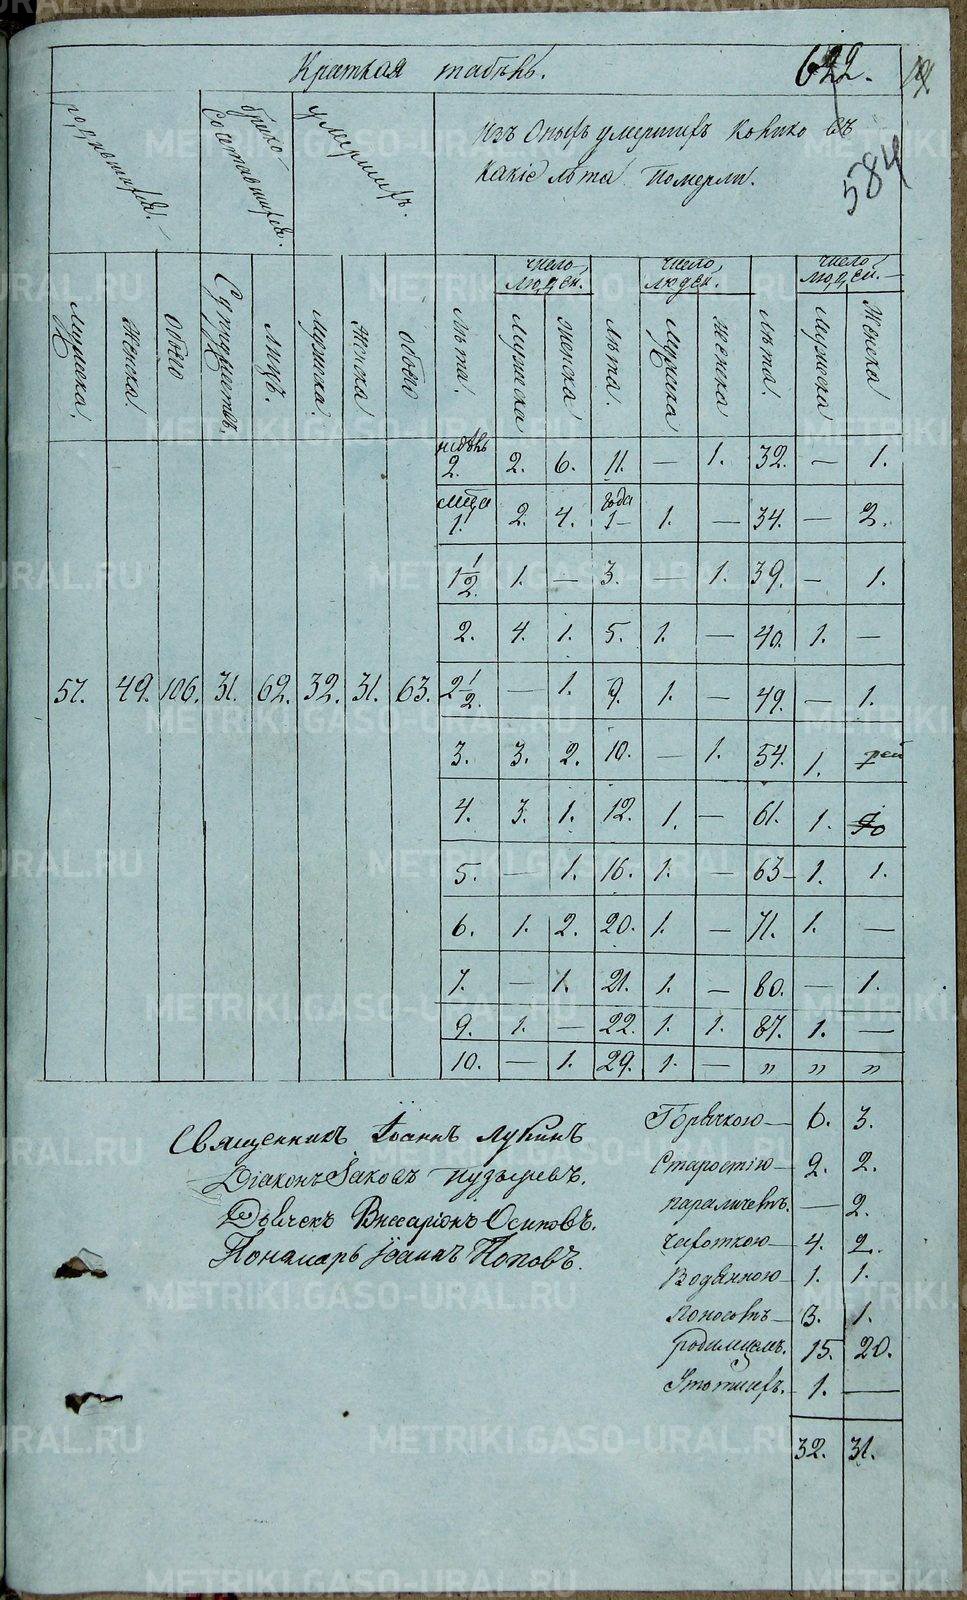 Краткая табѣль.
622.
584
родившихся.
бракосочетавшихся.
умершихъ.
Изъ оныхъ умершихъ колико въ
какіе лѣта померли.
число людей. число людей. число людей.
Мужеска. Женска. Обоего Супружествъ. лицъ. мужска. Женска обоего лѣта. Мужеска женска. лѣта. Мужеска женска лѣта. мужеска Женска
недѣль 2. 2. 6. 11. — 1. 32. — 1.
1. 2. 4. года 1 1. — 34. — 2.
1 1/2. 1. — 3. — 1. 39. — 1.
2. 4. 1. 5. 1. — 40. 1. —
57. 49. 106. 31. 62. 32. 31. 63. 2 1/2. — 1. 9. 1. — 49. — 1.
3. 3. 2. 10. — 1. 54. 1.
4. 3. 1. 12. 1. — 61. 1.
5. — 1. 16. 1. — 63 1. 1.
6. 1. 2. 20. 1. — 71. 1. —
7. — 1. 21. 1. — 80. — 1.
9. 1. — 22. 1. 1. 87. 1. —
10. — 1. 29. 1. — „ „ „
Горячкою — 6. 3.
Священникъ Іоаннъ Лукинъ
Старостію — 2. 2.
Діаконъ Іаковъ Пузыревъ.
параличемъ. — 2.
Дьячекъ Виссаріонъ Осиповъ.
Чахоткою — 4. 2.
Пономарь Іоаннъ Поповъ.
Водяною 1. 1.
Поносомъ — 3. 1.
родимцемъ. 15. 20.
Утопшихъ. 1. —
32. 31.
METRIKI.GASO-URAL.RU